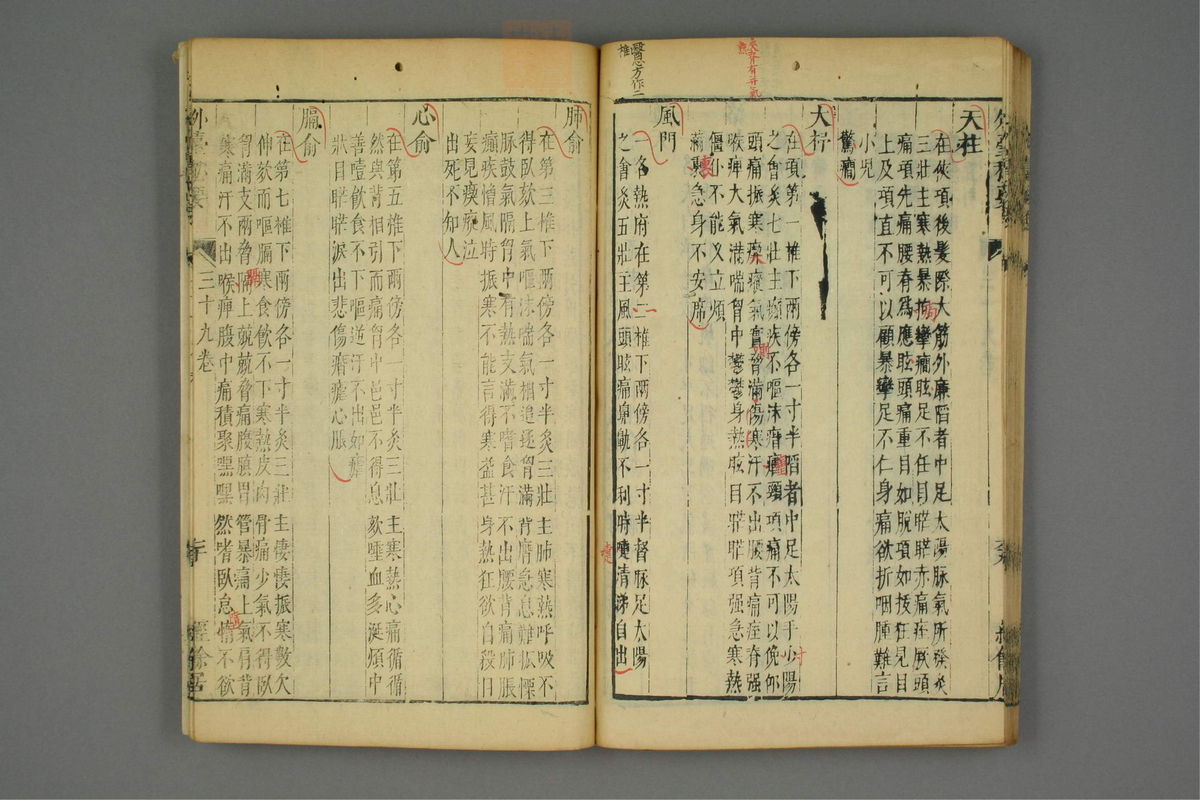 天柱
在俠項後髮際大筋外廉陷者中足太陽脉氣所發灸
三壯主寒熱暴拘攣癇眩足不任目䀮䀮赤痛痓厥頭
痛項先痛腰脊爲應眩頭痛重目如脫項如拔狂見目
上及項直不可以顧暴攣足不仁身痛欲折咽腫難言
小兒
驚癎
大杼
在項第一椎下兩傍各一寸半陷者中足太陽手少陽
之會灸七壯主癲疾不嘔沫
頭痛振寒
喉痺大氣滿喘胷中鬱鬱身熱眩目䀮䀮項强急寒熱
僵仆不能久立煩
滿裏急身不安席
風門
一名熱府在第二椎下兩傍各一寸半督脉足太陽
之會灸五壯主風頭眩痛鼻鼽不利時嚏清涕自出
醫心方作二
椎
肺俞
在第三椎下兩傍各一寸半灸三壯主肺寒熱呼吸不
得卧欬上氣嘔沫喘氣相追逐胷滿背膺急息難振慄
脉鼓氣膈胷中有熱支滿不嗜食汗不出腰背痛肺脹
癲疾憎風時振寒不能言得寒益甚身熱狂欲自殺目
妄見瘈瘲泣
出死不知人
心俞
在第五椎下兩傍各一寸半灸三壯主寒熱心痛循循
然與背相引而痛胷中邑邑不得息欬唾血多涎煩中
善噎飲食不下嘔逆汗不出如瘧
狀目䀮䀮淚出悲傷痎瘧心脹
膈俞
在第七椎下兩傍各一寸半灸三壯主悽悽振寒數欠
伸欬而嘔膈寒食飲不下寒熱皮肉骨痛少氣不得卧
胷滿支兩脅膈上兢兢脅痛腹䐜胃管暴痛上氣肩背
寒痛汗不出喉痺腹中痛積聚嘿嘿然嗜卧怠惰不欲
三十九卷
經餘居